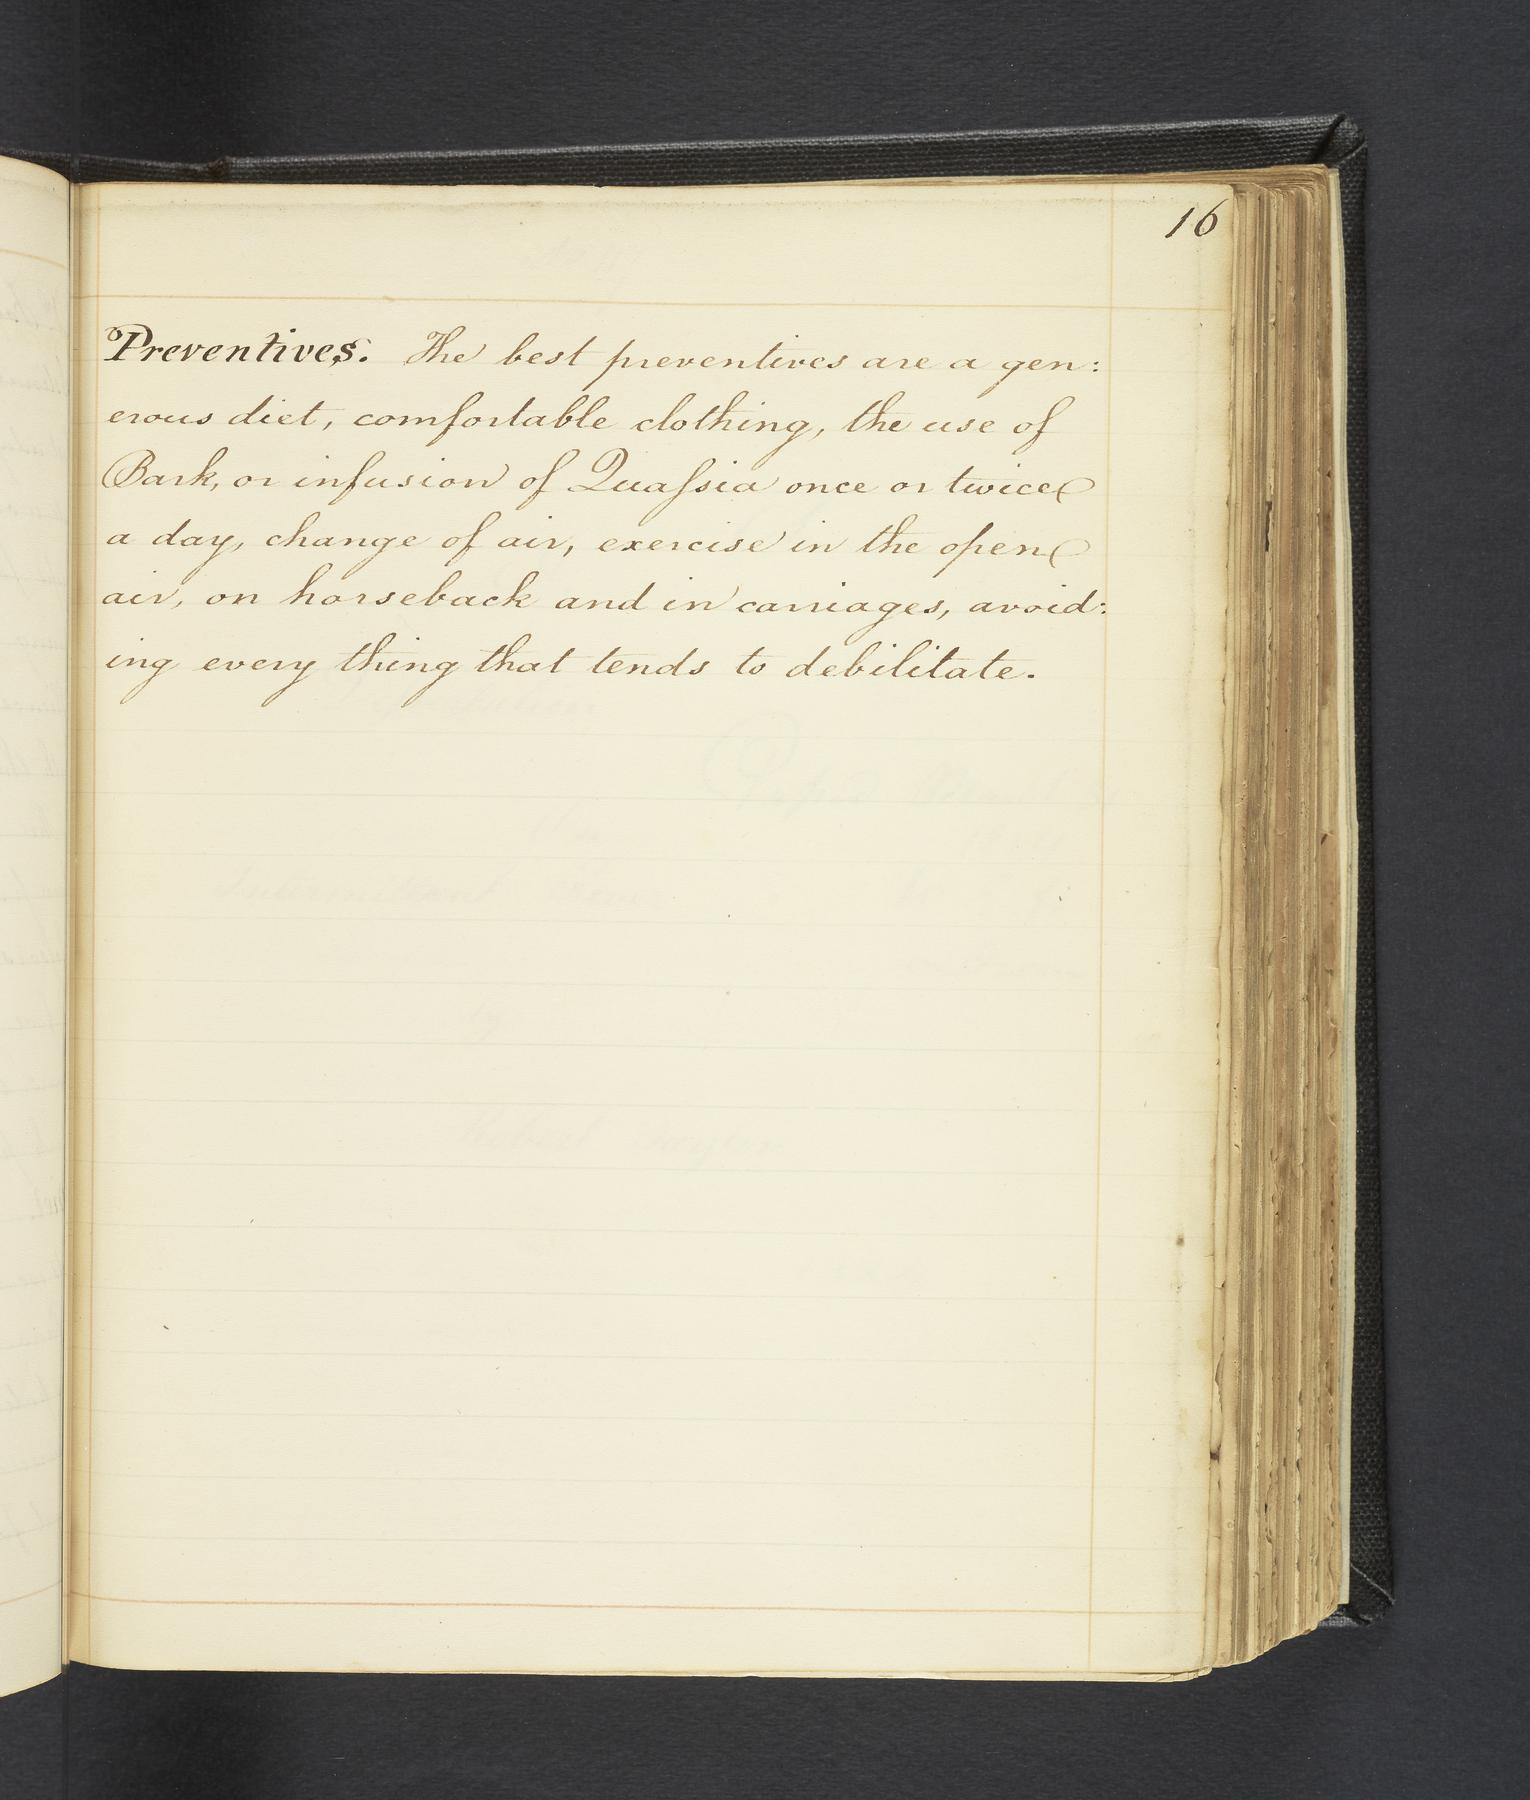 16
Preventives. The best preventives are a gen:
erous diet, comfortable clothing, the use of
Bark, or infusion of Quaſsia once or twice
a day, change of air, exercise in the open
air, on horseback and in carriages, avoid:
ing every thing that tends to debilitate.